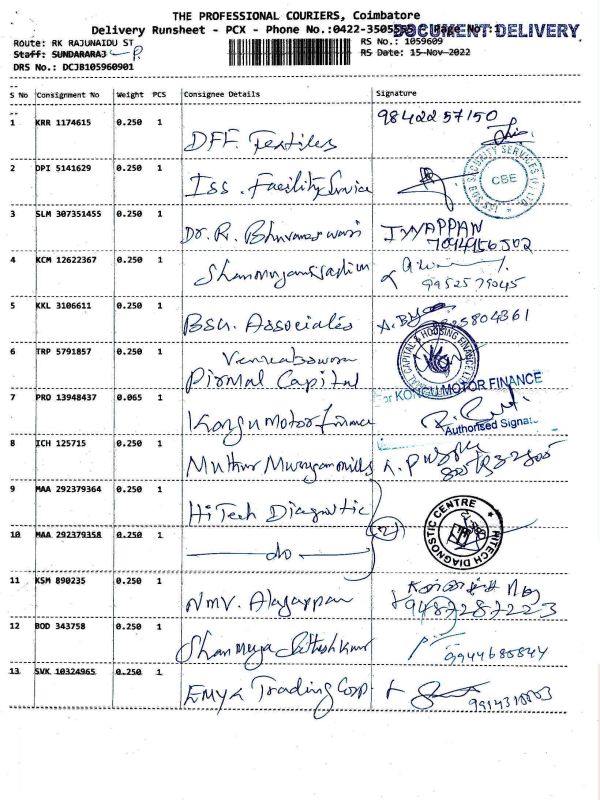 THE PROFESSIONAL COURIERS, Coimbatore
Delivery Runsheet - PCX - Phone No.:0422-3505555 Page No.:1
DOCUMENT DELIVERY
Route: RK RAJUNAIDU ST RS No.: 1059609
Staff: SUNDARARAJ RS Date: 15-Nov-2022
DRS No.: DCJB105960901
S No Consignment No Weight PCS Consignee Details Signature
1 KRR 1174615 0.250 1 DFF Textiles 98422 57150
2 DPI 5141629 0.250 1 Iss. Facility Service CBE
3 SLM 307351455 0.250 1 Dr. R. Bhuvaneswari IYYAPPAN
4 KCM 12622367 0.250 1 9952579045
5 KKL 3106611 0.250 1 Associates
6 TRP 5791857 0.250 1
Pirmal Capital CAPITAL & HOUSING FINANCE
7 PRO 13948437 0.065 1 Kongu Motor Finance For KONGU MOTOR FINANCE
Authorised Signat
8 ICH 125715 0.250 1 Muthur Murugan mills
9 MAA 292379364 0.250 1 HiTech Diagnostic HITECH DIAGNOSTIC CENTRE
10 MAA 292379358 0.250 1 do (2)
11 KSM 890235 0.250 1 NMV. Alagappan
9487287223
12 BOD 343758 0.250 1 9944686844
13 SVK 10324965 0.250 1 EMYK Trading Corp